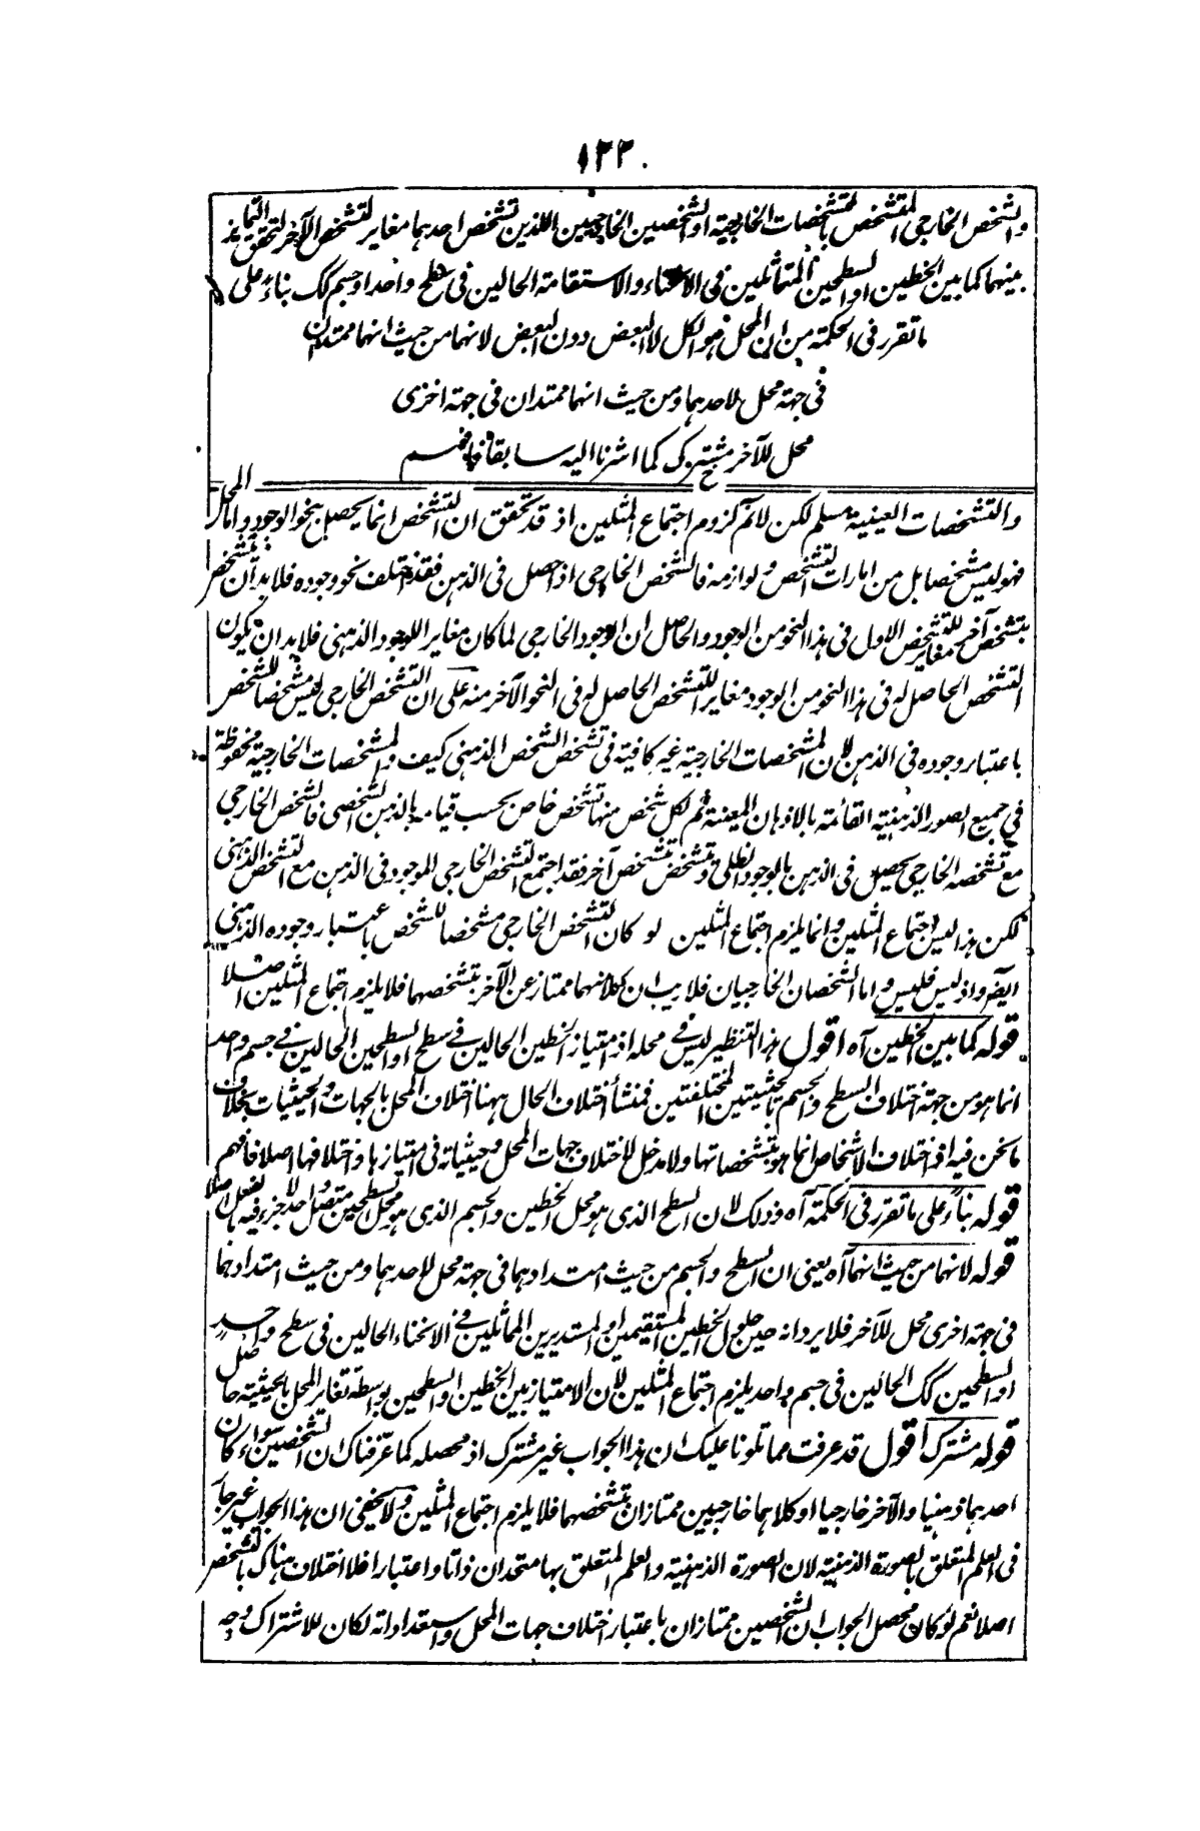 ١٣٣
والشخص الخارجي المتشخص بالمتشخصات الخارجية او الشخصين الخارجيين اللذين تشخص احدهما مغاير لتشخص الآخر لتحقق التمايز
بينهما كما بين الخطين او السطحين المتماثلين في الانحناء والاستقامة الحالين في سطح واحد او جسم كك بناء على
ما تقرر في الحكمة من ان المحل هو الكل لا البعض دون البعض لانهما من حيث انهما ممتدان
في جهة محل لاحدهما ومن حيث انهما ممتدان في جهة اخرى
محل للآخر مشترك كما اشرنا اليه سابقا فافهم
والتشخصات العينية مسلم لكن لانم لزوم اجتماع المثلين اذ قد تحقق ان التشخص انما يحصل بنحو الوجود واما المحل
فهو ليس مشخصا بل من امارات التشخص ولوازمه فالشخص الخارجي اذا حصل في الذهن فقد اختلف نحو وجوده فلا بد ان يتشخص
بتشخص آخر مغاير للتشخص الاول في هذا النحو من الوجود والحاصل ان الوجود الخارجي لما كان مغاير اللوجود الذهني فلا بد ان يكون
التشخص الحاصل له في هذا النحو من الوجود مغاير للتشخص الحاصل له في النحو الآخر منه على ان التشخص الخارجي ليس مشخصا للشخص
باعتبار وجوده في الذهن لان المشخصات الخارجية غير كافية في تشخص الشخص الذهني كيف والمشخصات الخارجية محفوظة
في جميع الصور الذهنية القائمة بالاذهان المعينة ثم لكل شخص منها تشخص خاص بحسب قيامه بالذهن الشخصي فالشخص الخارجي
مع تشخصه الخارجي يحصل في الذهن بالوجود الظلي ويتشخص بتشخص آخر فقد اجتمع التشخص الخارجي الموجود في الذهن مع التشخص الذهني
لكن هذا ليس اجتماع المثلين وانما يلزم اجتماع المثلين لو كان التشخص الخارجي مشخصا للشخص باعتبار وجوده الذهني
ايضا واذ ليس فليس واما الشخصان الخارجيان فلا ريب ان كلا منهما ممتاز عن الآخر بتشخصهما فلا يلزم اجتماع المثلين اصلا
قوله كما بين الخطين آه اقول هذا التنظير ليس في محله اذ امتياز الخطين الحالين في سطح او السطحين الحالين في جسم واحد
انما هو من جهة اختلاف السطح والجسم بالحيثيتين المختلفتين فمنشأ اختلاف الحال ههنا اختلاف المحل بالجهات والحيثيات بخلاف
ما نحن فيه اذ اختلاف الاشخاص انما هو بتشخصاتها ولا مدخل لاختلاف جهات المحل وحيثياته في امتيازها واختلافها اصلا فافهم
قوله بناء على ما تقرر في الحكمة آه وذلك لان السطح الذي هو محل الخطين والجسم الذي هو محل السطحين متصل واحد لا جزء فيه بالفعل اصلا
قوله لانهما من حيث انهما آه يعني ان السطح والجسم من حيث امتدادهما في جهة محل لاحدهما ومن حيث امتدادهما
في جهة اخرى محل للآخر فلا يرد انه حين حلول الخطين المستقيمين او المستديرين المماثلين في الانحناء الحالين في سطح واحد
او السطحين كك الحالين في جسم واحد يلزم اجتماع المثلين لان الامتياز بين الخطين والسطحين بواسطة تغاير المحل بالحيثية حاصل
قوله مشترك اقول قد عرفت مما تلونا عليك ان هذا الجواب غير مشترك اذ محصله كما عرفناك ان الشخصين سواء كان
احدهما ذهنيا والآخر خارجيا او كلاهما خارجيين ممتازان بتشخصهما فلا يلزم اجتماع المثلين ولا يخفى ان هذا الجواب غير جار
في العلم المتعلق بالصورة الذهنية لان الصورة الذهنية والعلم المتعلق بها متحدان ذاتا واعتبارا فلا اختلاف هناك بالتشخص
اصلا نعم لو كان محصل الجواب ان الشخصين ممتازان باعتبار اختلاف جهات المحل واستعداداته لكان للاشتراك وجه